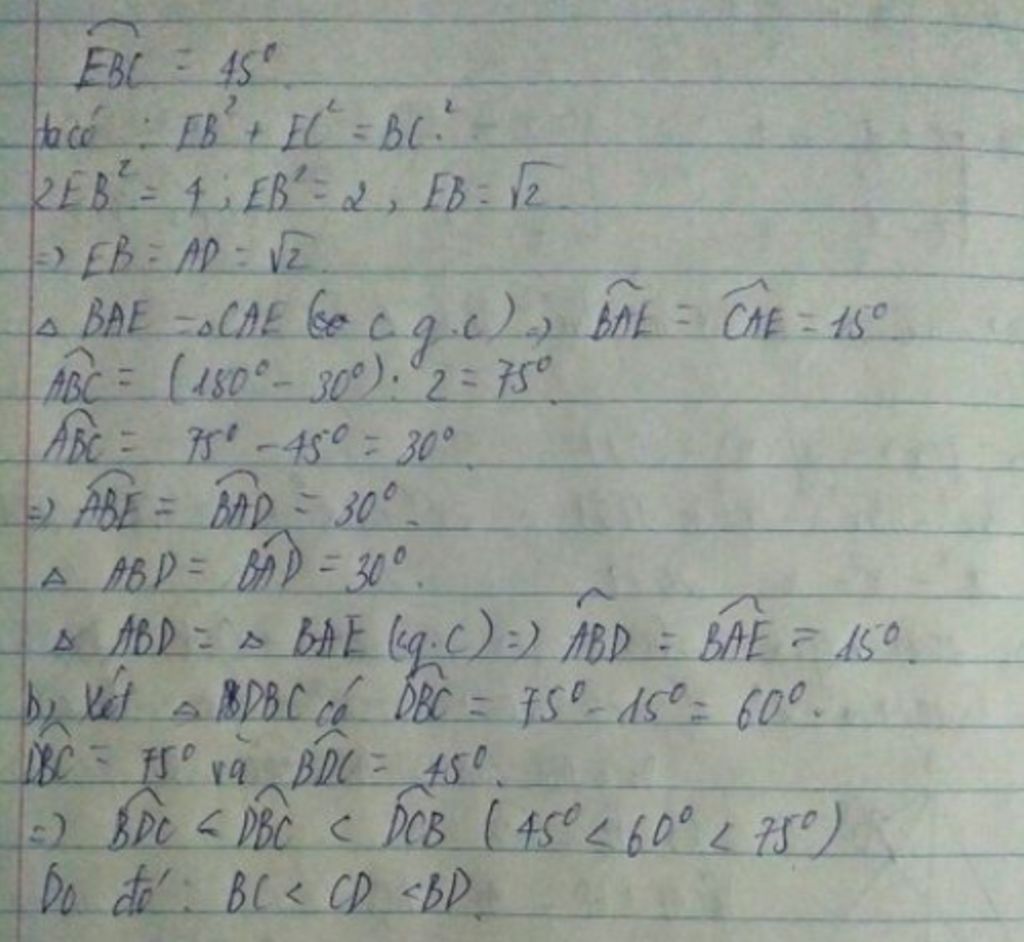 $\widehat{EBC}$ = 45°
ta có : EB² + EC² = BC.²
2EB² = 4 ; EB² = 2 , EB = √2
=> EB = AD = √2
△ BAE = △ CAE ( c g.c) => $\widehat{BAE}$ = $\widehat{CAE}$ = 15°
$\widehat{ABC}$ = (180° - 30°) : 2 = 75°
$\widehat{ABC}$ = 75° - 45° = 30°
=> $\widehat{ABE}$ = $\widehat{BAD}$ = 30°.
△ ABD = $\widehat{BAD}$ = 30°.
△ ABD = △ BAE (cg.c) => $\widehat{ABD}$ = $\widehat{BAE}$ = 15°.
b, Xét △ DBC có $\widehat{DBC}$ = 75° - 15° = 60°.
$\widehat{DBC}$ = 75° và $\widehat{BDC}$ = 45°.
=> $\widehat{BDC}$ < $\widehat{DBC}$ < $\widehat{DCB}$ ( 45° < 60° < 75°)
Do đó : BC < CD < BD.